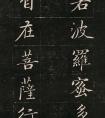 若波羅蜜多
自在菩薩行